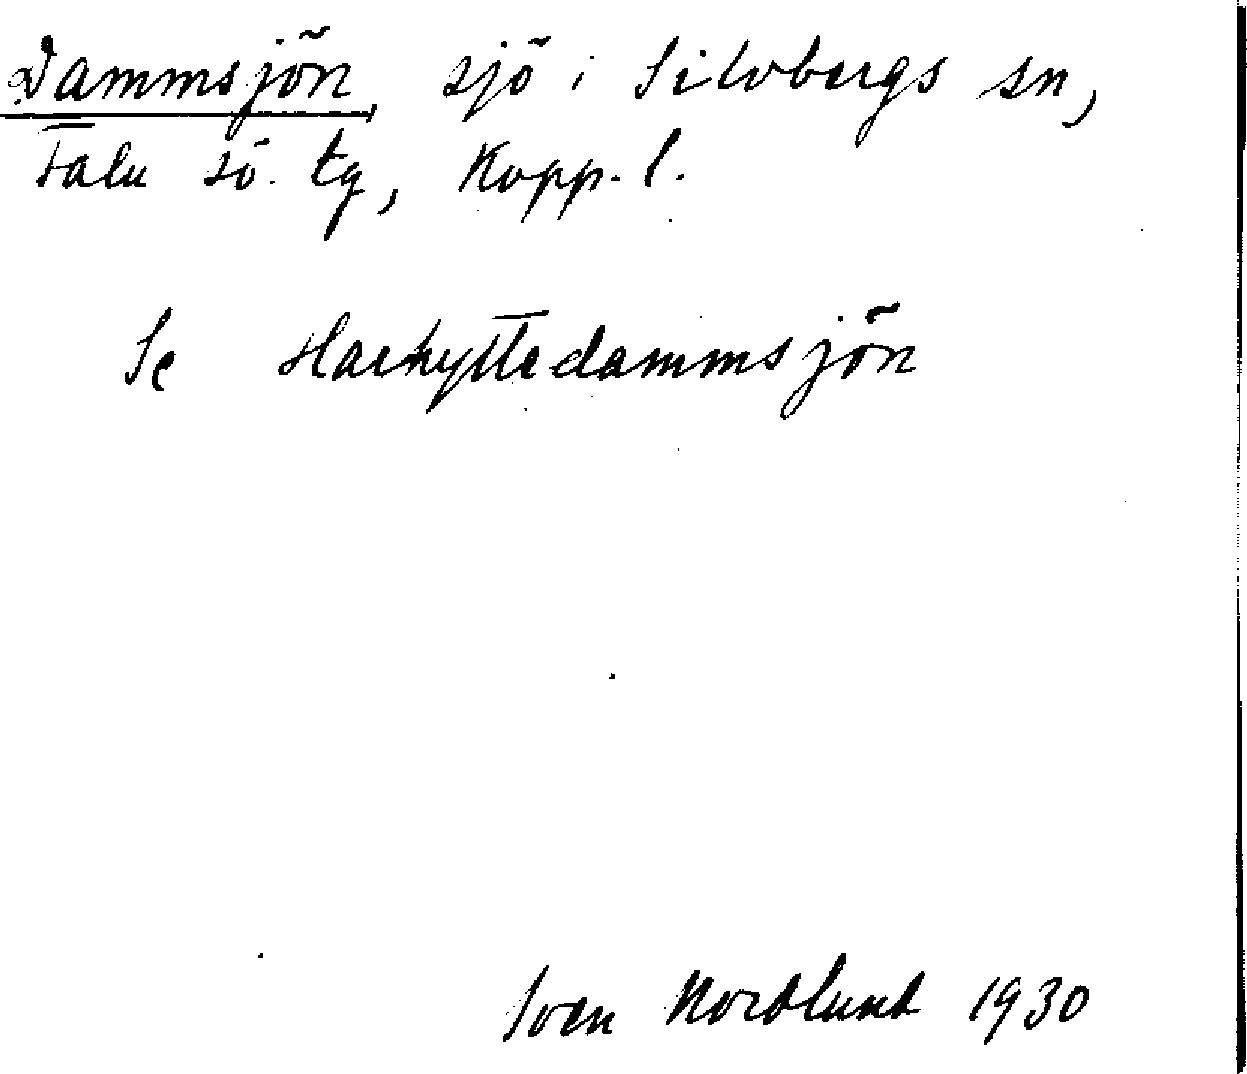 Dammsjön, sjö i Silvbergs sn,
Falu sö. tg, Kopp. l.
Se Harhyttedammsjön
Sven Nordlund 1930